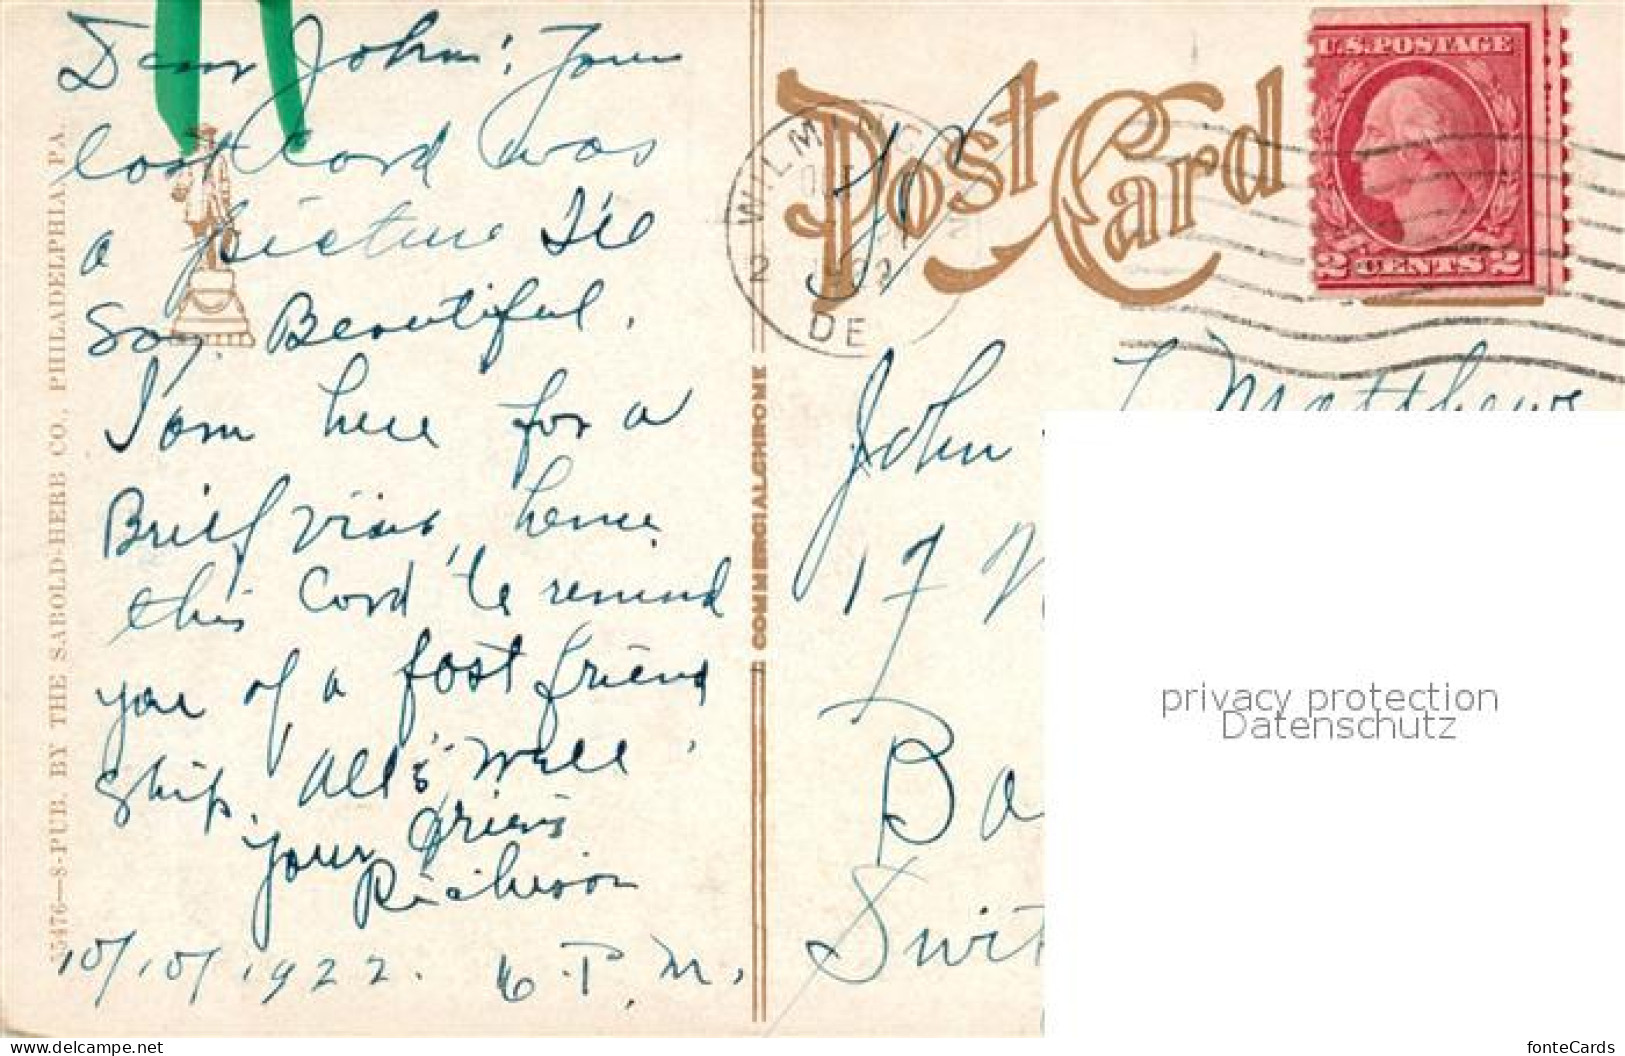 Dear John: Your
last Card was
a picture I'll
Say. Beautiful.
I am here for a
Brief visit, hence
this Card to remind
you of a fast friend
ship. All's well.
Your friend
Richeson
10/10/1922. 6 P.M.
15476—S-PUB. BY THE SABOLD-HERB CO., PHILADELPHIA, PA.
COMMERCIALCHROME
Post Card
WILMINGTON
2
DE
U.S.POSTAGE
2 CENTS 2
John L Matthews
17
Ba
Swit
privacy protection
Datenschutz
www.delcampe.net
fonteCards